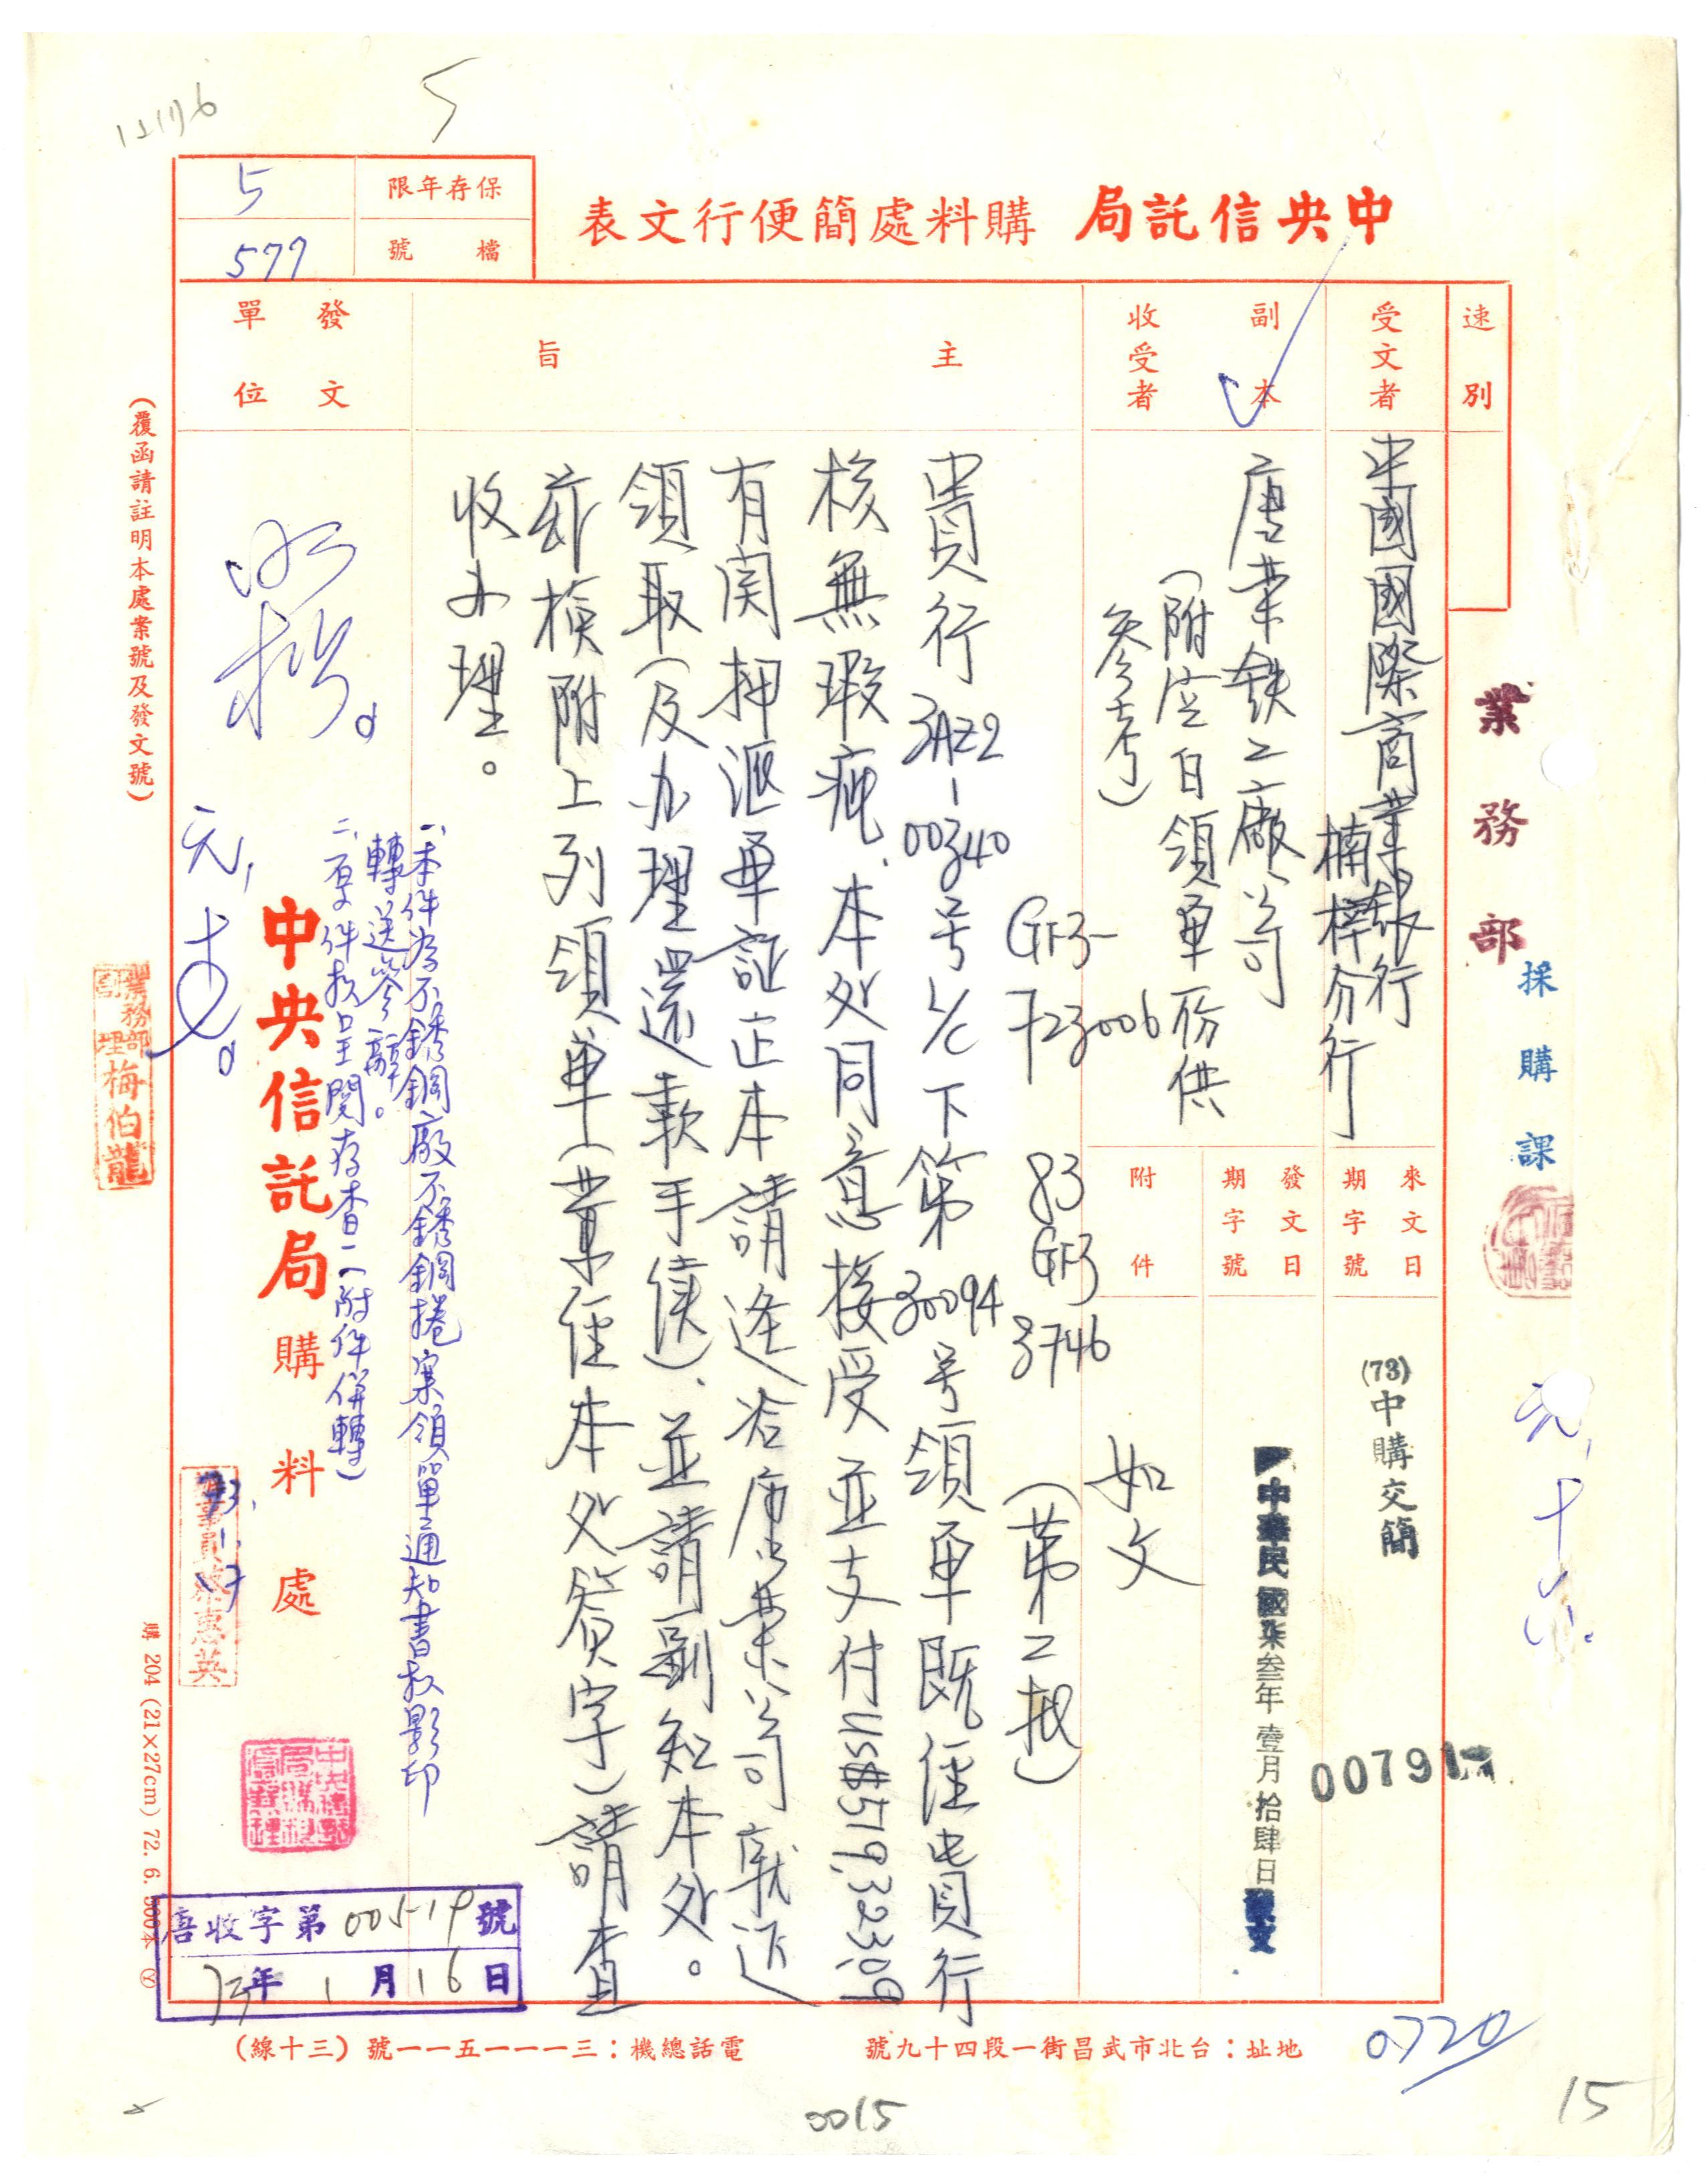 5
中央信託局 購料處簡便行文表
保存年限
5
檔號
577
速別
受文者
中國國際商業銀行
楠梓分行
副本收受者
唐荣铁工廠公司
(附空白領單1份供
參考)
來文日期字號
發文日期字號
附件
(73)中購交簡
007917
中華民國柒叁年壹月拾肆日發文
如文
主旨
GF3-723006
83GF33746
(第二批)
貴行3AZ2-00340号L/C下第30094号領单既経貴行
核無瑕疵、本処同意接受並支付US$519,323.09
有関押滙单証正本請逕洽唐荣公司就近
領取(及办理還款手续)、並請副知本処。
茲檢附上列領单(業経本処簽字)請查
收办理。
發文單位
中央信託局 購料處
一、本件為不銹鋼廠不銹鋼捲案領單通知書擬影印
轉送參辦。
二、原件擬呈閱存查(附件併轉)
業務部
採購課
業務部
副
理
梅伯龍
蔡惠英
73.1.17
唐收字第00519號
73年1月16日
(覆函請註明本處案號及發文號)
購 204 (21×27cm) 72. 6. 500本
地址:台北市武昌街一段四十九號
電話總機:三一一一五一一號(三十線)
0720
0015
15